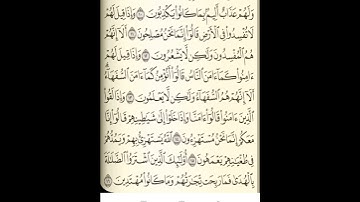 وَلَهُمۡ عَذَابٌ أَلِيمُۢ بِمَا كَانُواْ يَكۡذِبُونَ ١٠ وَإِذَا قِيلَ لَهُمۡ
لَا تُفۡسِدُواْ فِي ٱلۡأَرۡضِ قَالُوٓاْ إِنَّمَا نَحۡنُ مُصۡلِحُونَ ١١ أَلَآ إِنَّهُمۡ
هُمُ ٱلۡمُفۡسِدُونَ وَلَٰكِن لَّا يَشۡعُرُونَ ١٢ وَإِذَا قِيلَ لَهُمۡ
ءَامِنُواْ كَمَآ ءَامَنَ ٱلنَّاسُ قَالُوٓاْ أَنُؤۡمِنُ كَمَآ ءَامَنَ ٱلسُّفَهَآءُۗ
أَلَآ إِنَّهُمۡ هُمُ ٱلسُّفَهَآءُ وَلَٰكِن لَّا يَعۡلَمُونَ ١٣ وَإِذَا لَقُواْ
ٱلَّذِينَ ءَامَنُواْ قَالُوٓاْ ءَامَنَّا وَإِذَا خَلَوۡاْ إِلَىٰ شَيَٰطِينِهِمۡ قَالُوٓاْ إِنَّا
مَعَكُمۡ إِنَّمَا نَحۡنُ مُسۡتَهۡزِءُونَ ١٤ ٱللَّهُ يَسۡتَهۡزِئُ بِهِمۡ وَيَمُدُّهُمۡ
فِي طُغۡيَٰنِهِمۡ يَعۡمَهُونَ ١٥ أُوْلَٰٓئِكَ ٱلَّذِينَ ٱشۡتَرَوُاْ ٱلضَّلَٰلَةَ
بِٱلۡهُدَىٰ فَمَا رَبِحَت تِّجَٰرَتُهُمۡ وَمَا كَانُواْ مُهۡتَدِينَ ١٦